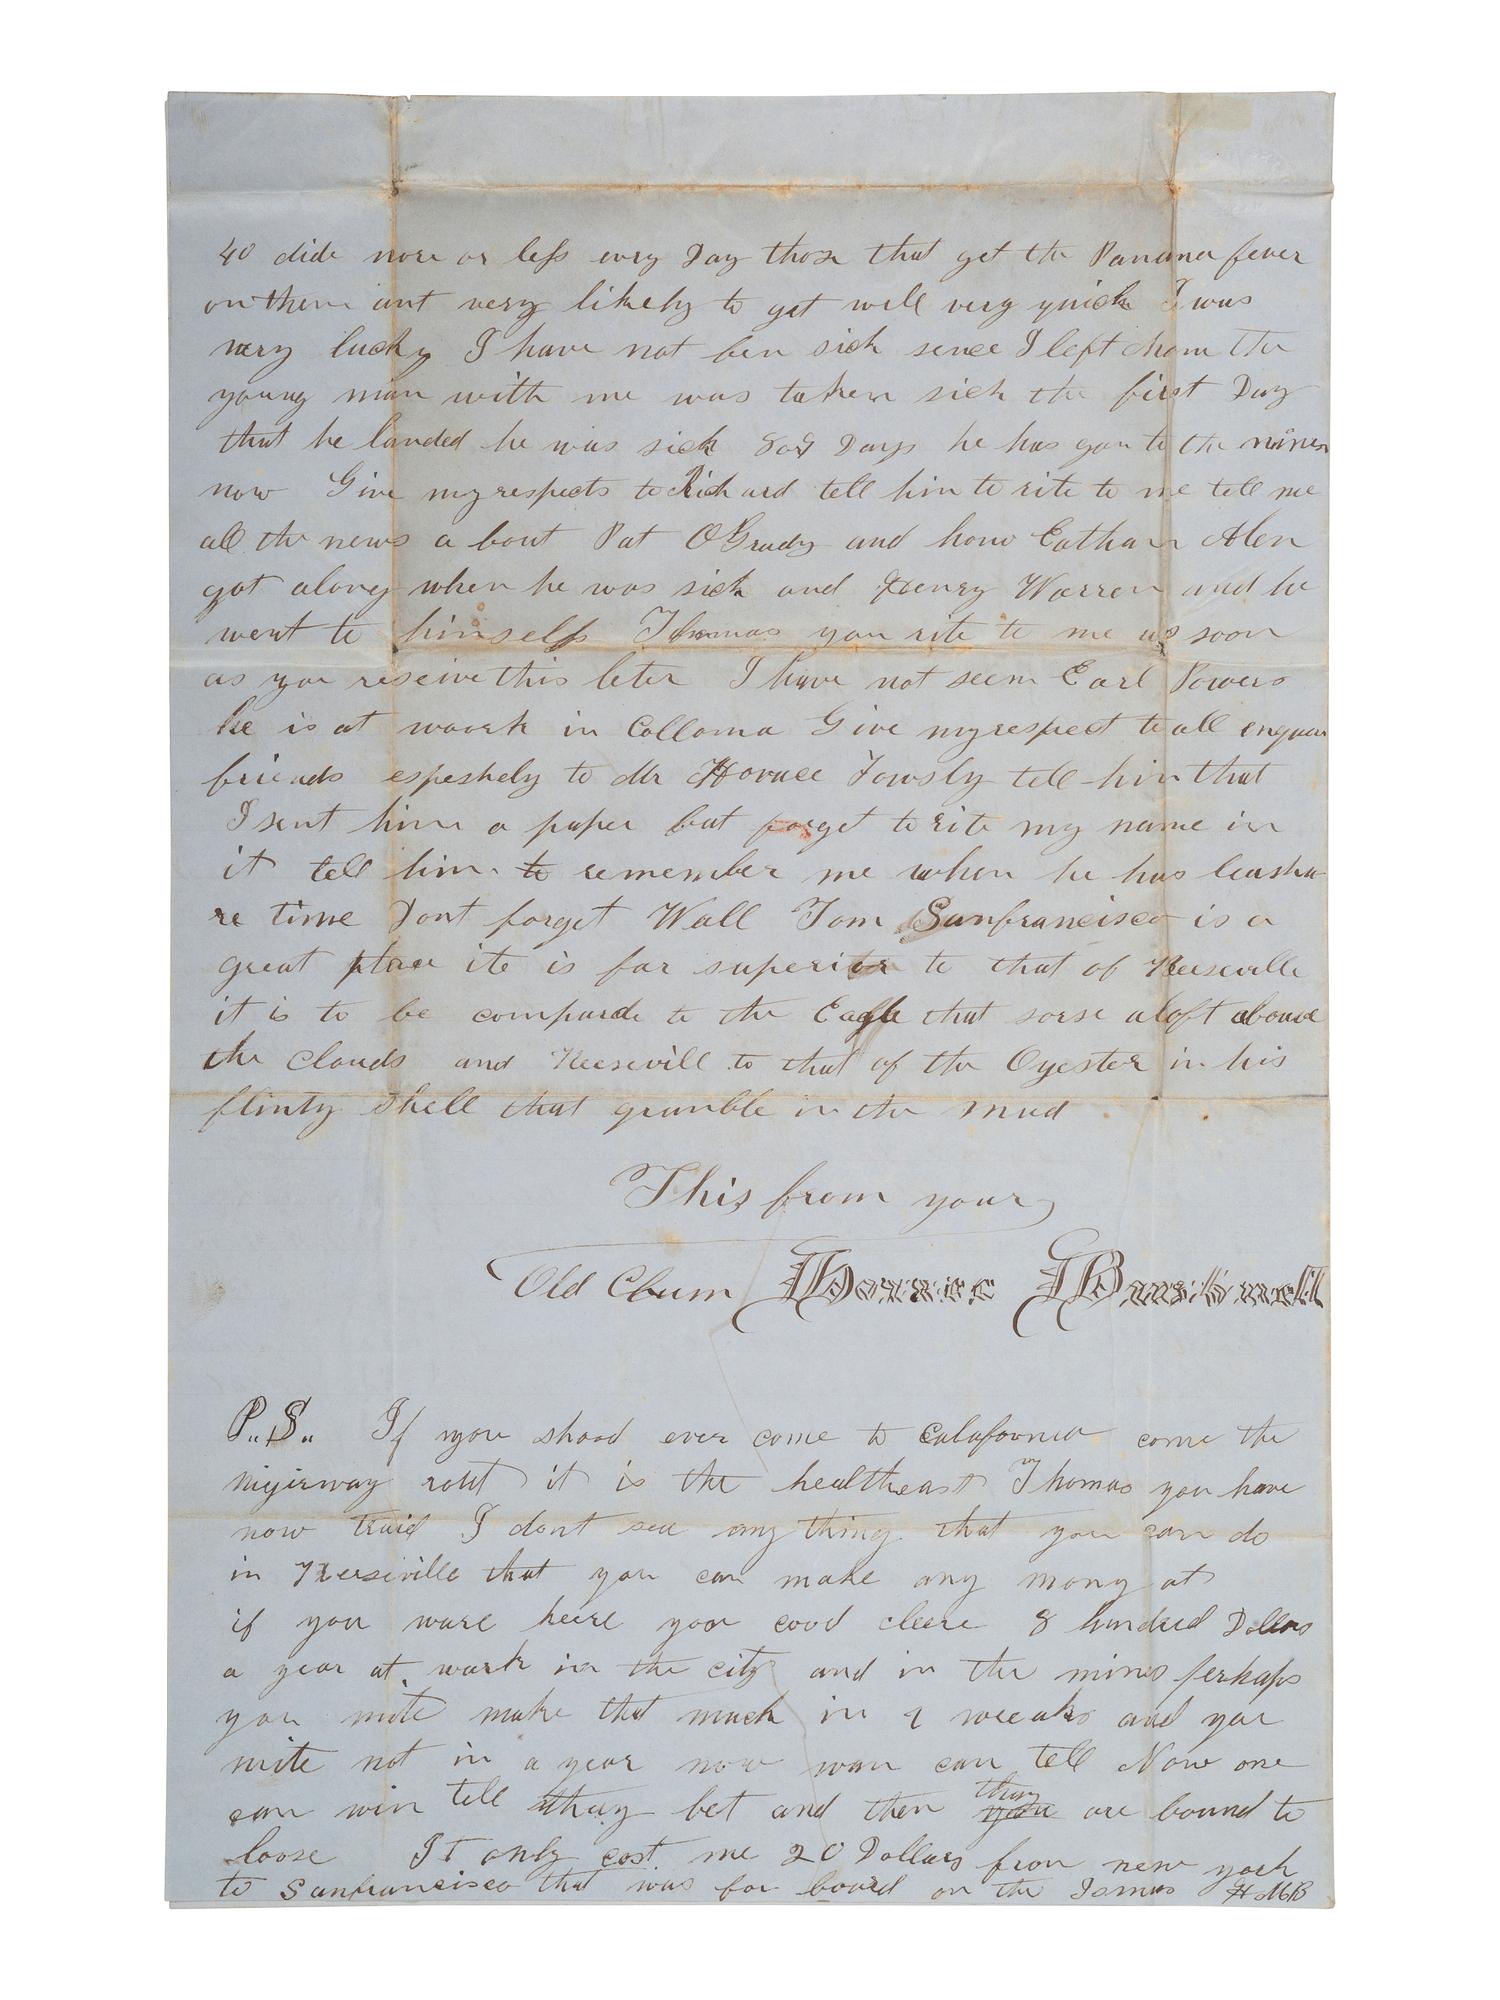 40 dide more or less evry Day those that get the Panama fever
on them ant very likely to get well very quick I was
very lucky I have not ben sick sence I left home the
young man with me was taken sick the first Day
that he landed he was sick 8 or 9 Days he has gon to the mines
now Give my respects to Richard tell him to rite to me tell me
all the news a bout Pat OGrady and how Eathan Alen
got along when he was sick and Henry Warren and he
went to himself Thomas you rite to me as soon
as you reseive this leter I have not seem Earl Powers
he is at woork in Colloma Give my respect to all enquir
friends espeshely to Mr Horace Towsly tell him that
I sent him a paper but forget to rite my name in
it tell him to remember me when he has leashu
re time Dont forget Wall Tom Sanfrancisco is a
great place ite is far superior to that of Keeseville
it is to be comparde to the Eagle that sorse aloft aboave
the clouds and Keesevill to that of the Oyester in his
flinty Shell that gramble in the mud
This from your
Old Chum Horace Bushnell
P.S. If you shood ever come to Calafornia come the
nigirway rout it is the healtheast Thomas you have
now traid I dont see any thing that you can do
in Keeseville that you can make any mony at
if you ware heire you cood cleere 8 hundred Dollars
a year at work in the city and in the mines perhaps
you mite make that much in 2 weeaks and you
mite not in a year now wan can tell Now one
can win tell thay bet and then thay you are bound to
loose It only cost me 20 Dollars from new york
to Sanfrancisco that was for board on the Ismus H M B